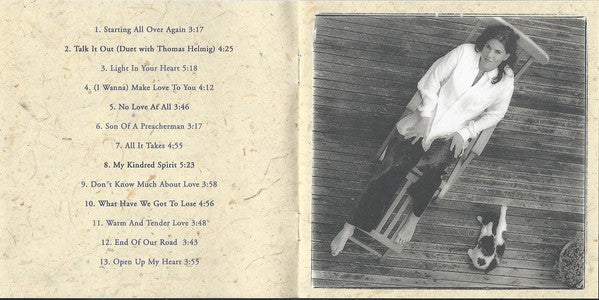 1. Starting All Over Again 3:17
2. Talk It Out (Duet with Thomas Helmig) 4:25
3. Light In Your Heart 5:18
4. (I Wanna) Make Love To You 4:12
5. No Love At All 3:46
6. Son Of A Preacherman 3:17
7. All It Takes 4:55
8. My Kindred Spirit 5:23
9. Don´t Know Much About Love 3:58
10. What Have We Got To Lose 4:56
11. Warm And Tender Love 3:48
12. End Of Our Road 3:43
13. Open Up My Heart 3:55